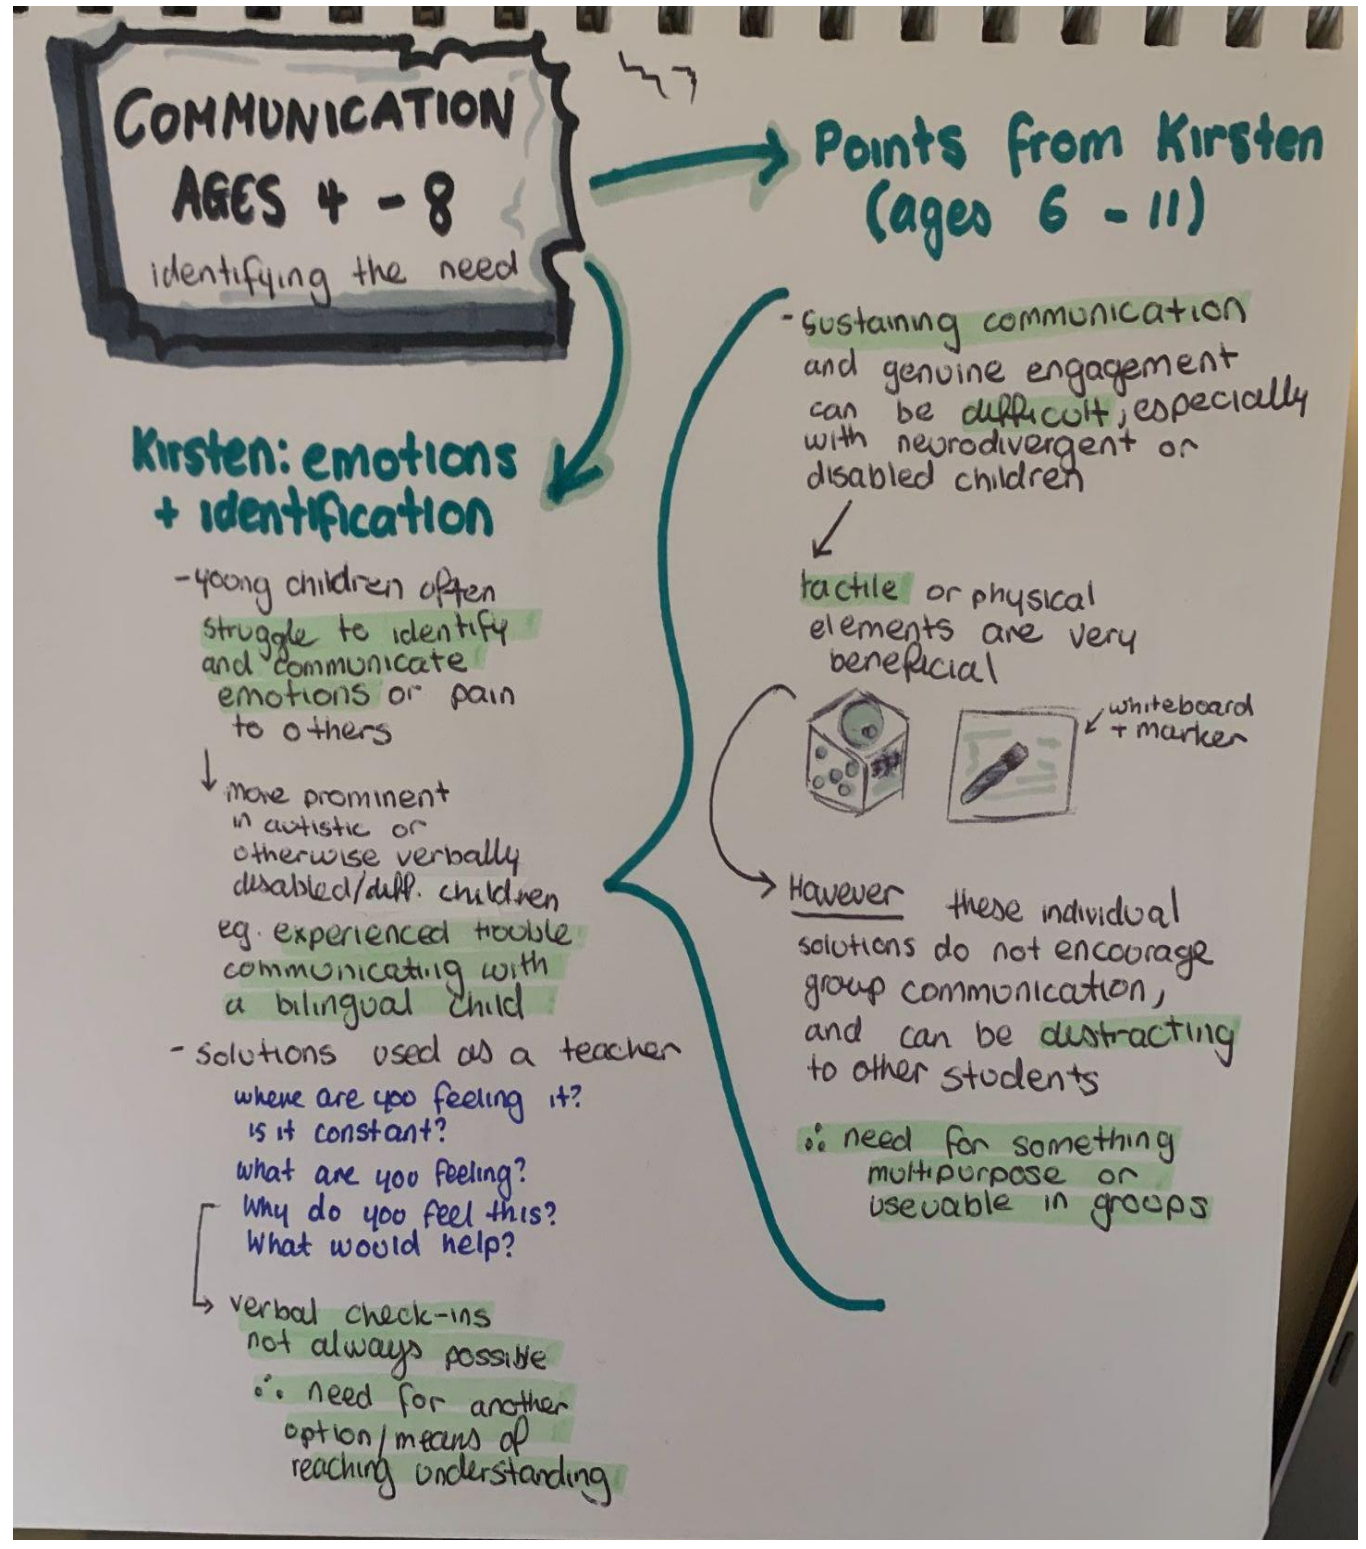 COMMUNICATION
AGES 4 - 8
identifying the need
Points from Kirsten
(ages 6 - 11)
Kirsten: emotions
+ identification
- young children often
struggle to identify
and communicate
emotions or pain
to others
more prominent
in autistic or
otherwise verbally
disabled/diff. children
eg. experienced trouble
communicating with
a bilingual child
- solutions used as a teacher
where are you feeling it?
is it constant?
what are you feeling?
Why do you feel this?
What would help?
verbal check-ins
not always possible
∴ need for another
option/means of
reaching understanding
- sustaining communication
and genuine engagement
can be difficult, especially
with neurodivergent or
disabled children
tactile or physical
elements are very
beneficial
whiteboard
+ marker
However these individual
solutions do not encourage
group communication,
and can be distracting
to other students
∴ need for something
multipurpose or
useuable in groups